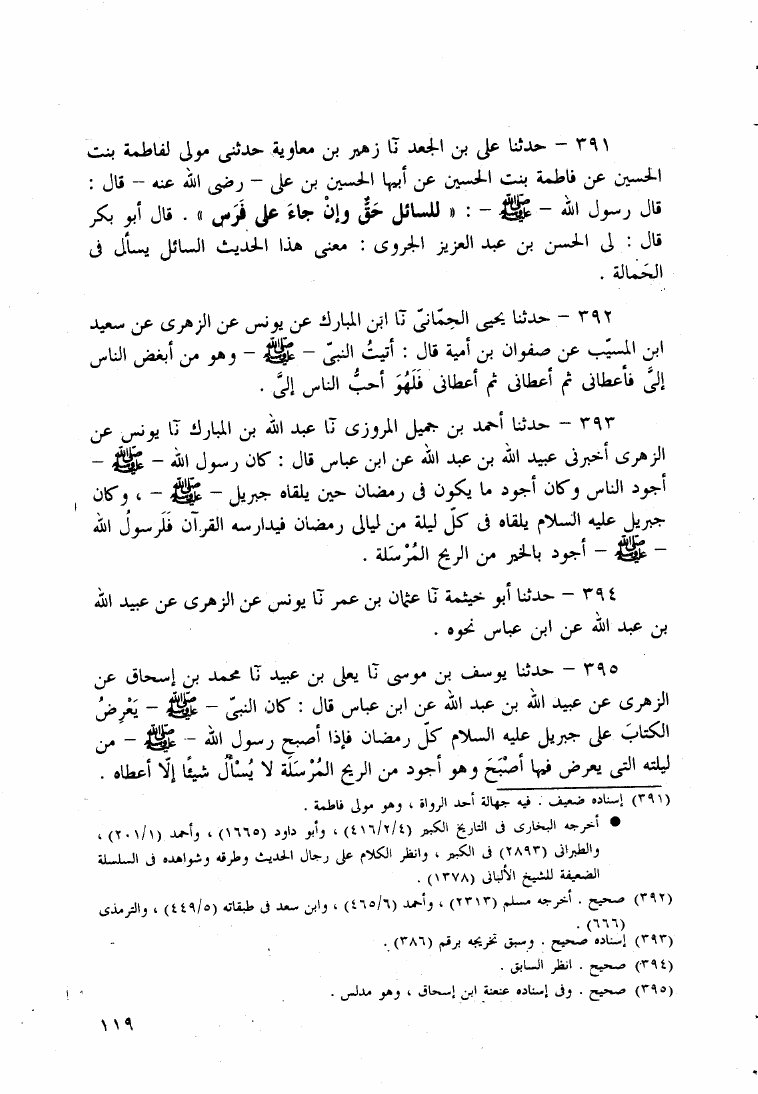 ٣٩١ – حدثنا على بن الجعد نا زهير بن معاوية حدثنى مولى لفاطمة بنت
الحسين عن فاطمة بنت الحسين عن أبيها الحسين بن على – رضى الله عنه – قال :
قال رسول الله – ﷺ – : « للسائل حَقٌّ وإنْ جاءَ على فَرَس » . قال أبو بكر
قال : لى الحسن بن عبد العزيز الجروى : معنى هذا الحديث السائل يسأل فى
الحَمالة .
٣٩٢ – حدثنا يحيى الحِمّانىّ نا ابن المبارك عن يونس عن الزهرى عن سعيد
ابن المسيّب عن صفوان بن أمية قال : أتيتُ النبىّ – ﷺ – وهو من أبغض الناس
إلىَّ فأعطانى ثم أعطانى ثم أعطانى فَلَهُوَ أحبُّ الناس إلىَّ .
٣٩٣ – حدثنا أحمد بن جميل المروزى نا عبد الله بن المبارك نا يونس عن
الزهرى أخبرنى عبيد الله بن عبد الله عن ابن عباس قال : كان رسول الله – ﷺ –
أجود الناس وكان أجود ما يكون فى رمضان حين يلقاه جبريل – ﷺ – ، وكان
جبريل عليه السلام يلقاه فى كلّ ليلة من ليالى رمضان فيدارسه القرآن فَلَرسولُ الله
– ﷺ – أجود بالخير من الريح المُرْسَلة .
٣٩٤ – حدثنا أبو خيثمة نا عثمان بن عمر نا يونس عن الزهرى عن عبيد الله
بن عبد الله عن ابن عباس نحوه .
٣٩٥ – حدثنا يوسف بن موسى نا يعلى بن عبيد نا محمد بن إسحاق عن
الزهرى عن عبيد الله بن عبد الله عن ابن عباس قال : كان النبىّ – ﷺ – يَعْرِضُ
الكتابَ على جبريل عليه السلام كلّ رمضان فإذا أصبح رسول الله – ﷺ – من
ليلته التى يعرض فيها أصْبَحَ وهو أجود من الريح المُرْسَلَة لا يُسْألُ شيئًا إلّا أعطاه .
(٣٩١) إسناده ضعيف . فيه جهالة أحد الرواة ، وهو مولى فاطمة .
● أخرجه البخارى فى التاريخ الكبير (٤١٦/٢/٤) ، وأبو داود (١٦٦٥) ، وأحمد (٢٠١/١) ،
والطبرانى (٢٨٩٣) فى الكبير ، وانظر الكلام على رجال الحديث وطرقه وشواهده فى السلسلة
الضعيفة للشيخ الألبانى (١٣٧٨) .
(٣٩٢) صحيح . أخرجه مسلم (٢٣١٣) ، وأحمد (٤٦٥/٦) ، وابن سعد فى طبقاته (٤٤٩/٥) ، والترمذى
(٦٦٦) .
(٣٩٣) إسناده صحيح . وسبق تخريجه برقم (٣٨٦) .
(٣٩٤) صحيح . انظر السابق .
(٣٩٥) صحيح . وفى إسناده عنعنة ابن إسحاق ، وهو مدلس .
١١٩